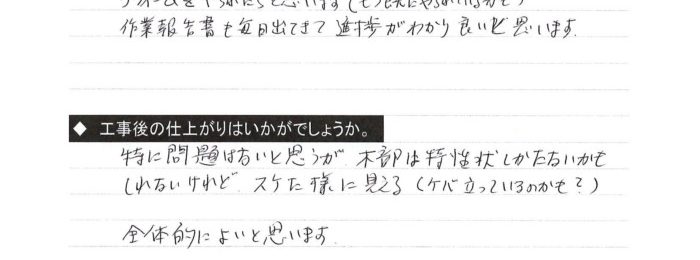 と思います(もう既に
作業報告書も毎日出てきて進捗がわかり良いと思います
◆ 工事後の仕上がりはいかがでしょうか。
特に問題はないと思うが 木部は特性状しかたないかも
しれないけれど スケた様に見える(ケバ立っているのかも?)
全体的によいと思います